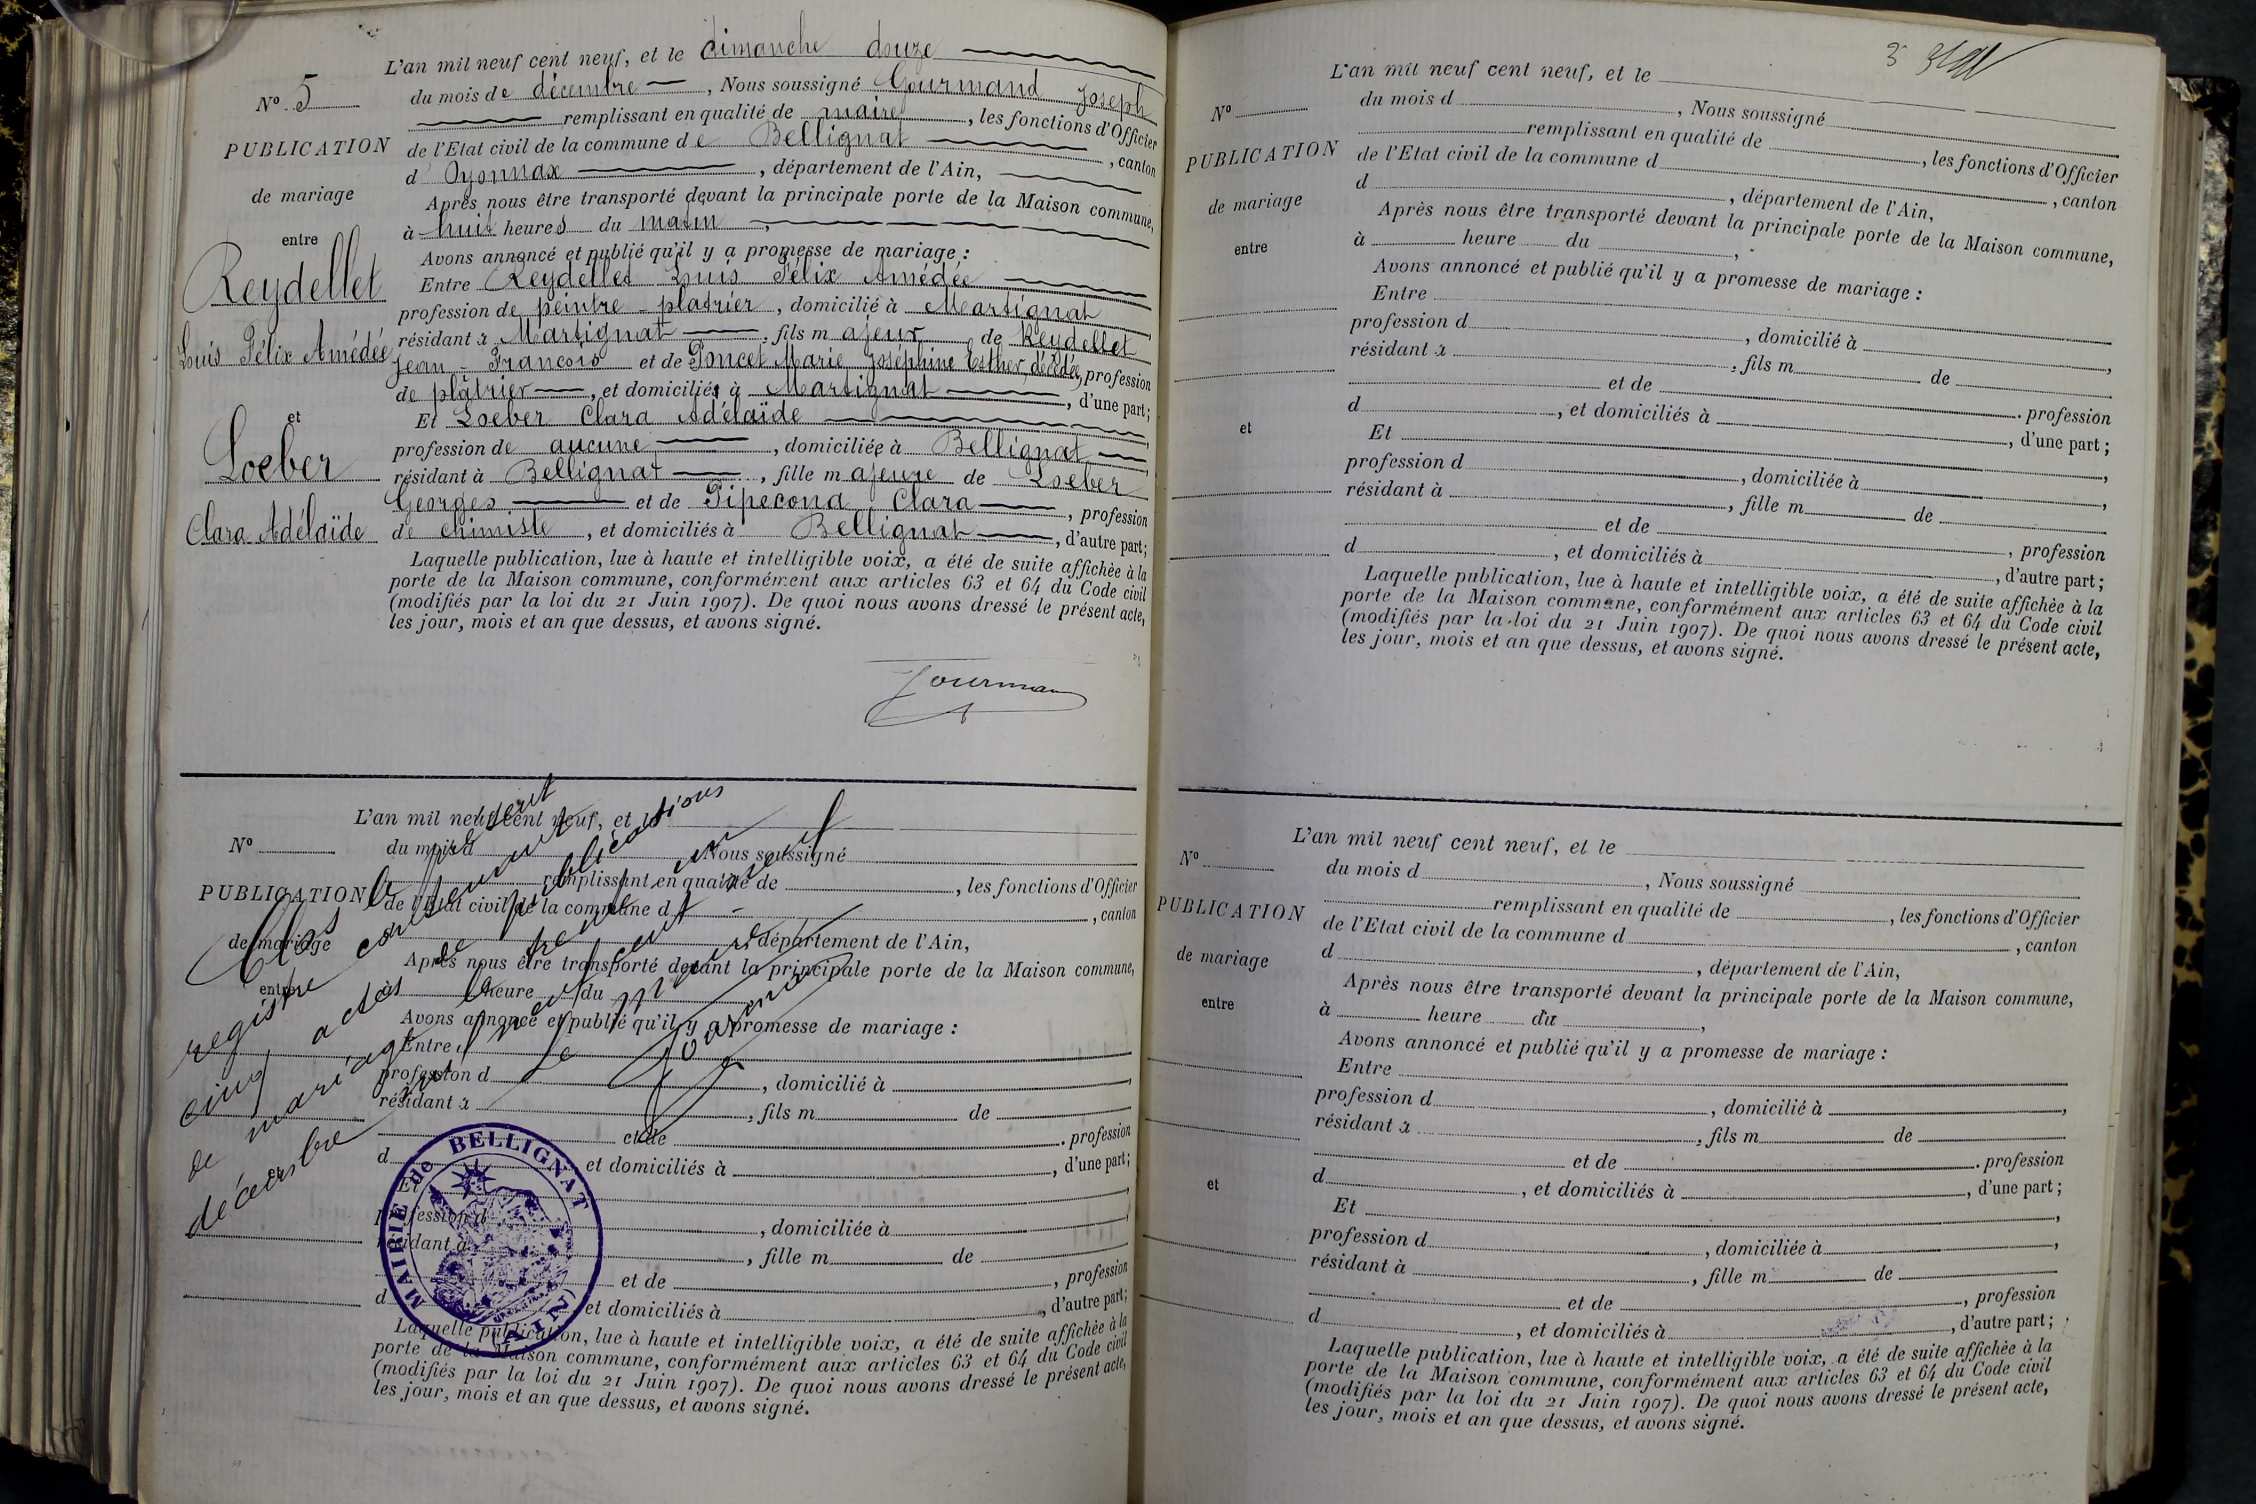 L'an mil neuf cent neuf, et le dimanche douze
N° 5
du mois de décembre, Nous soussigné Gourmand Joseph
remplissant en qualité de maire, les fonctions d'Officier
PUBLICATION
de l'Etat civil de la commune de Bellignat, canton
d'Oyonnax, département de l'Ain,
de mariage
Après nous être transporté devant la principale porte de la Maison commune,
à huit heures du matin,
entre
Avons annoncé et publié qu'il y a promesse de mariage :
Reydellet
Entre Reydellet Louis Félix Amédée
profession de peintre-platrier, domicilié à Martignat
Louis Félix Amédée
résidant à Martignat, fils majeur de Reydellet
Jean-François et de Poncet Marie Joséphine Esther, décédée, profession
de plâtrier, et domiciliés à Martignat, d'une part;
et
Et Loeber Clara Adélaïde
profession de aucune, domiciliée à Bellignat
Loeber
résidant à Bellignat, fille majeure de Loeber
Georges et de Pipecond Clara, profession
Clara Adélaïde
de chimiste, et domiciliés à Bellignat, d'autre part;
Laquelle publication, lue à haute et intelligible voix, a été de suite affichèe à la
porte de la Maison commune, conformément aux articles 63 et 64 du Code civil
(modifiés par la loi du 21 Juin 1907). De quoi nous avons dressé le présent acte,
les jour, mois et an que dessus, et avons signé.
Gourmand
L'an mil neuf cent neuf, et le
N°
du mois d, Nous soussigné
remplissant en qualité de, les fonctions d'Officier
PUBLICATION
de l'Etat civil de la commune d, canton
d, département de l'Ain,
de mariage
Après nous être transporté devant la principale porte de la Maison commune,
entre
à heure du
Avons annoncé et publié qu'il y a promesse de mariage :
Entre
profession d, domicilié à
résidant à, fils m de
et de. profession
d, et domiciliés à, d'une part;
Et
profession d, domiciliée à
résidant à, fille m de
et de, profession
d, et domiciliés à, d'autre part;
Laquelle publication, lue à haute et intelligible voix, a été de suite affichèe à la
porte de la Maison commune, conformément aux articles 63 et 64 du Code civil
(modifiés par la loi du 21 Juin 1907). De quoi nous avons dressé le présent acte,
les jour, mois et an que dessus, et avons signé.
Clos le présent
registre contenant
cinq actes de publications
de mariage le trente un
décembre mil neuf cent neuf
Le Maire
Gourmand
MAIRIE de BELLIGNAT
(AIN)
3
L'an mil neuf cent neuf, et le
N°
du mois d, Nous soussigné
remplissant en qualité de, les fonctions d'Officier
PUBLICATION
de l'Etat civil de la commune d, canton
d, département de l'Ain,
de mariage
Après nous être transporté devant la principale porte de la Maison commune,
entre
à heure du,
Avons annoncé et publié qu'il y a promesse de mariage :
Entre
profession d, domicilié à,
résidant à, fils m de
et de. profession
d, et domiciliés à, d'une part;
et
Et,
profession d, domiciliée à,
résidant à, fille m de
et de, profession
d, et domiciliés à, d'autre part;
Laquelle publication, lue à haute et intelligible voix, a été de suite affichèe à la
porte de la Maison commune, conformément aux articles 63 et 64 du Code civil
(modifiés par la loi du 21 Juin 1907). De quoi nous avons dressé le présent acte,
les jour, mois et an que dessus, et avons signé.
L'an mil neuf cent neuf, et le
N°
du mois d, Nous soussigné
remplissant en qualité de, les fonctions d'Officier
PUBLICATION
de l'Etat civil de la commune d, canton
d, département de l'Ain,
de mariage
Après nous être transporté devant la principale porte de la Maison commune,
entre
à heure du,
Avons annoncé et publié qu'il y a promesse de mariage :
Entre
profession d, domicilié à,
résidant à, fils m de
et de. profession
d, et domiciliés à, d'une part;
et
Et,
profession d, domiciliée à,
résidant à, fille m de
et de, profession
d, et domiciliés à, d'autre part;
Laquelle publication, lue à haute et intelligible voix, a été de suite affichèe à la
porte de la Maison commune, conformément aux articles 63 et 64 du Code civil
(modifiés par la loi du 21 Juin 1907). De quoi nous avons dressé le présent acte,
les jour, mois et an que dessus, et avons signé.